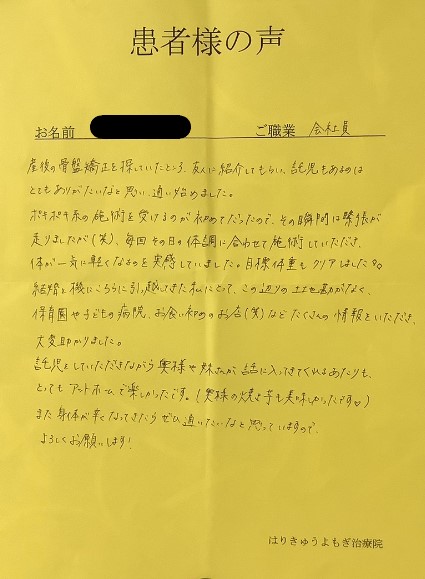 患者様の声
お名前 ご職業 会社員
産後の骨盤矯正を探していたところ、友人に紹介してもらい、託児もあるのは
とてもありがたいなと思い、通い始めました。
ボキボキ系の施術を受けるのが初めてだったので、その瞬間は緊張が
走りましたが(笑)、毎回その日の体調に合わせて施術していただき、
体が一気に軽くなるのを実感していました。目標体重もクリアしました
結婚を機にこちらに引っ越してきた私にとって、この辺りの土地勘がなく、
保育園や子どもの病院、お食い初めのお店(笑)など たくさんの情報をいただき、
大変助かりました。
託児をしていただきながら奥様や妹さんが話に入ってきてくれるあたりも、
とってもアットホームで楽しかったです。(奥様の焼き芋も美味しかったです♡)
また身体が辛くなってきたらぜひ通いたいなと思っていますので、
よろしくお願いします!
はりきゅうよもぎ治療院